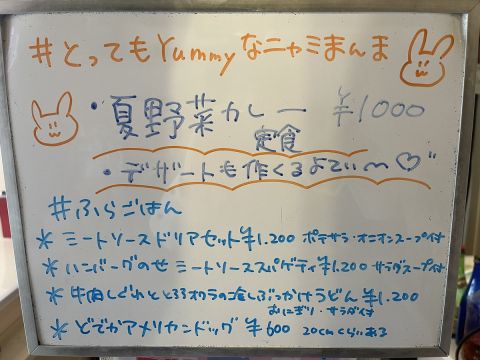 #とってもYummyなニャミまんま
・夏野菜カレー ¥1000
定食
・デザートも作くるよてい〜♡"
#ふらごはん
* ミートソースドリアセット¥1.200 ポテサラ・オニオンスープ付
* ハンバーグのせミートソーススパゲティ¥1.200 サラダスープ付
* 牛肉しぐれととろろオクラの冷しぶっかけうどん ¥1.200
おにぎり・サラダ付
* どでかアメリカンドッグ ¥600 20cmくらいある